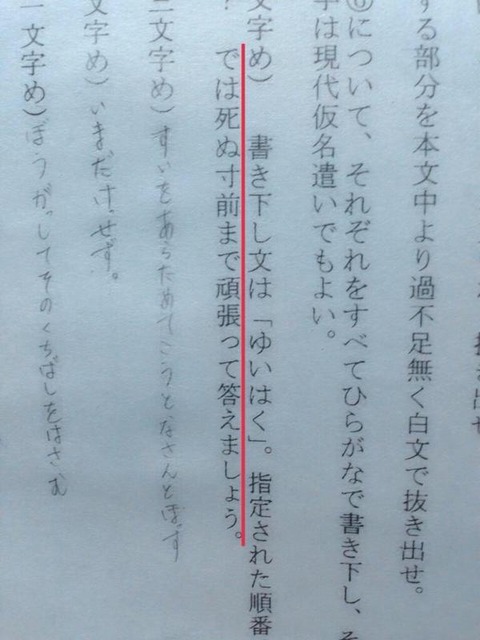 する部分を本文中より過不足無く白文で抜き出せ。
⑥について、それぞれをすべてひらがなで書き下し、そ
字は現代仮名遣いでもよい。
文字め） 書き下し文は「ゆいはく」。指定された順番
では死ぬ寸前まで頑張って答えましょう。
三文字め）すいをあらためてこうとなさんとほっす
文字め）いまだけせず。
一文字め）ぼうがっしてそのくちばしをはさむ